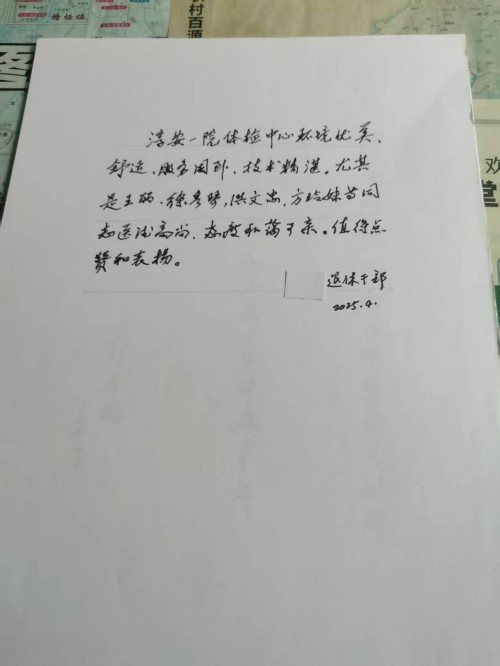 淳安一院体检中心环境优美、
舒适、服务周到、技术精湛。尤其
是王丽、徐 洪文忠、方 妹等同
志医德高尚、态度和蔼可亲。值得点
赞和表扬。
退休干部
2025.4.
村百源
欢
堂